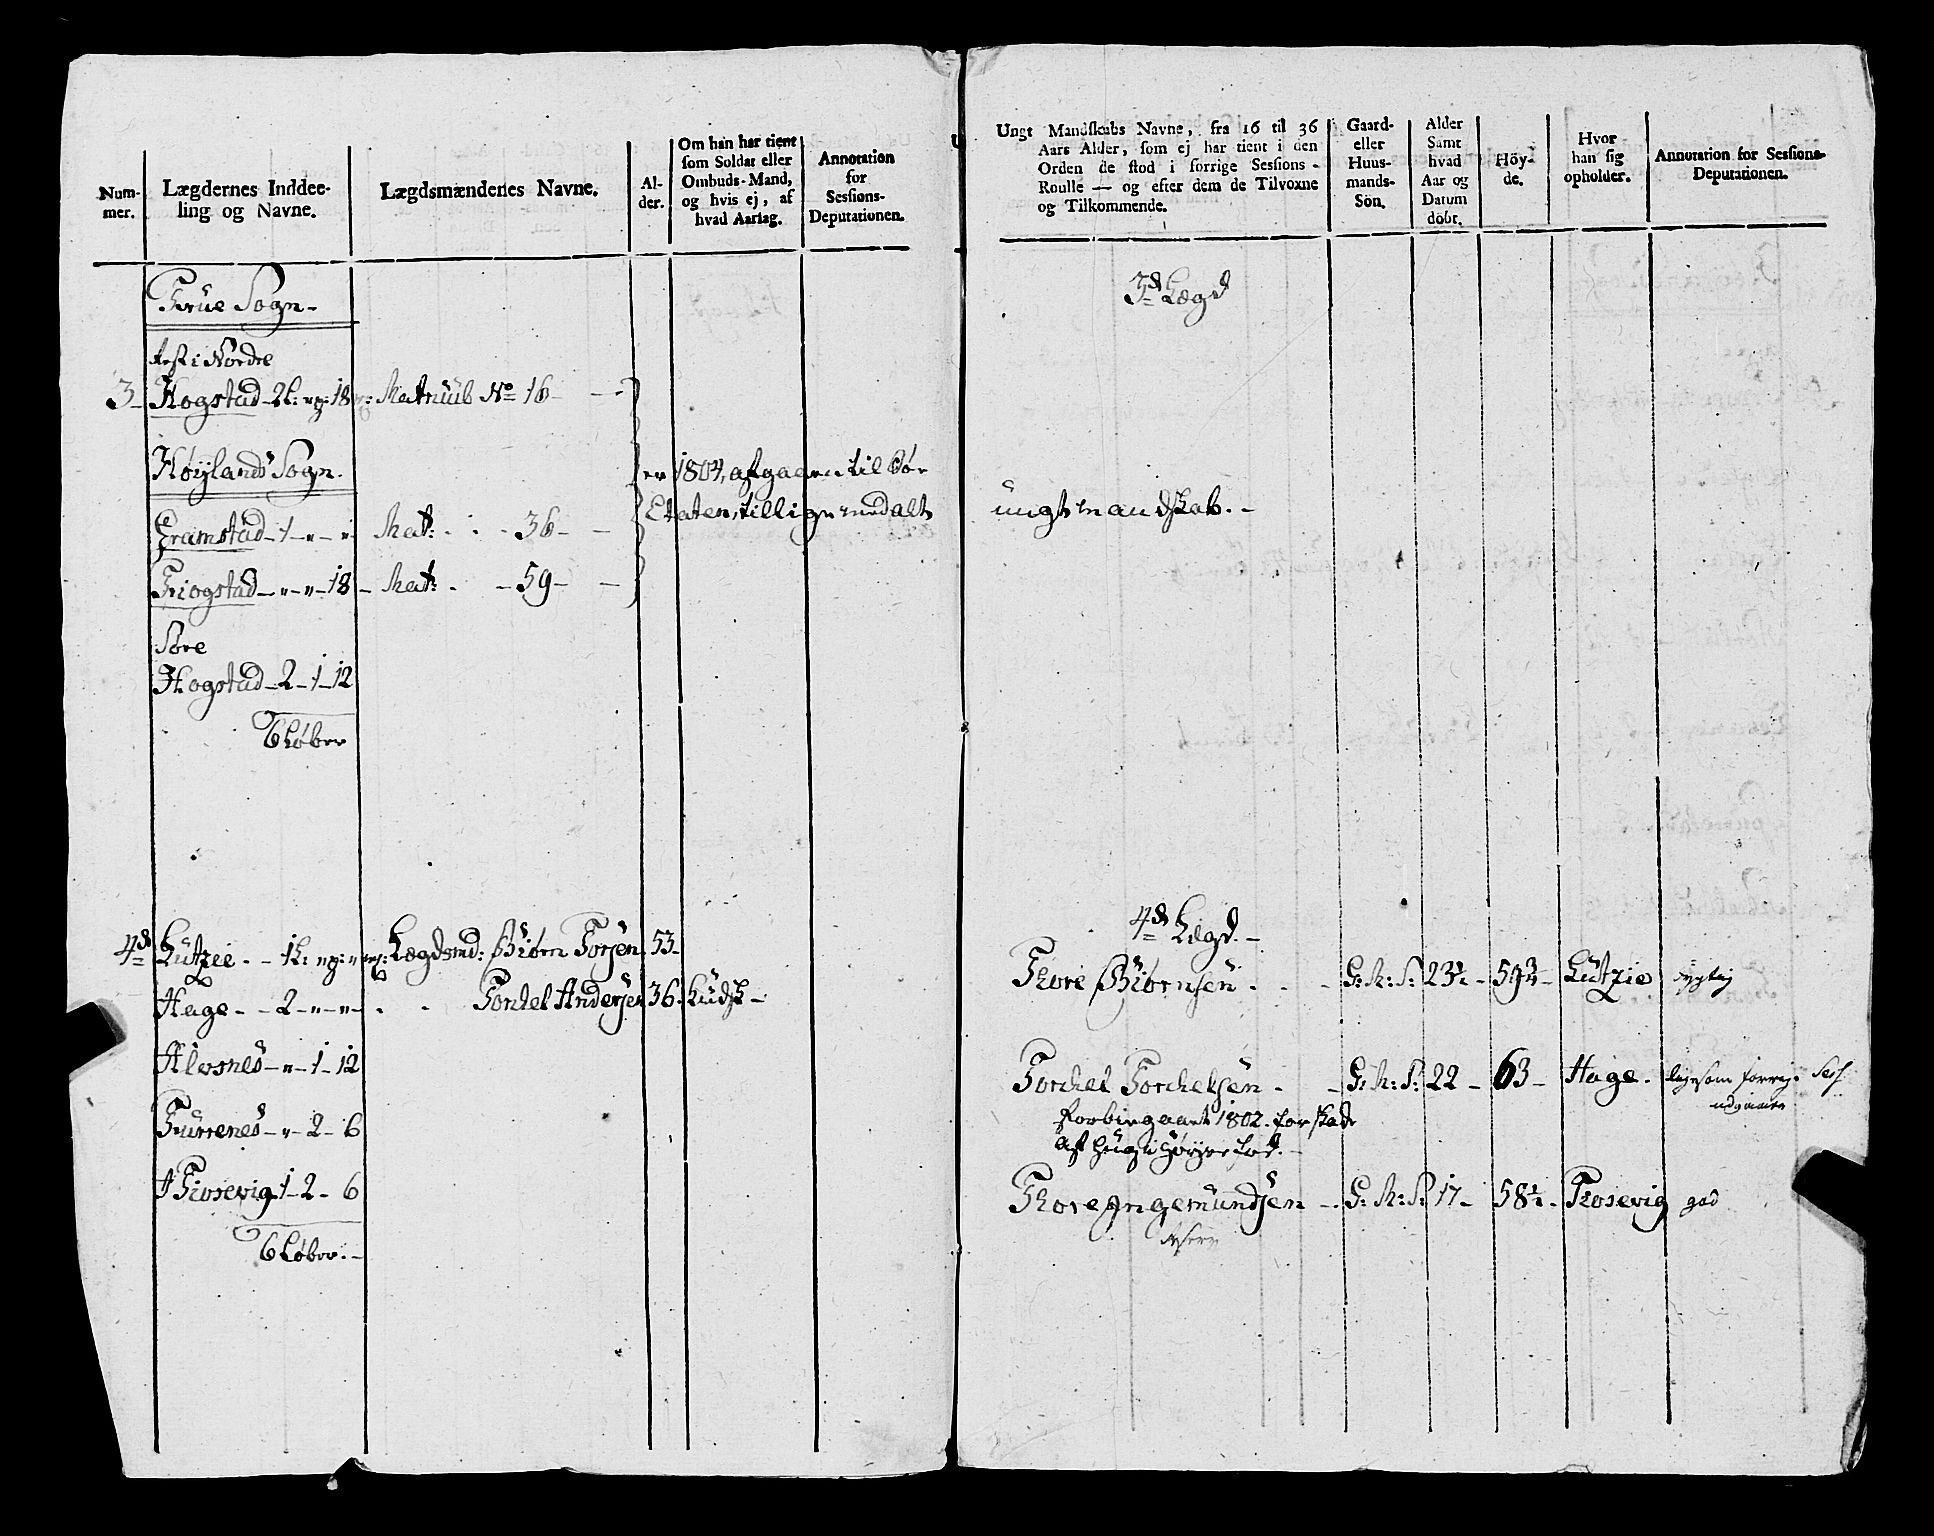 Num-
mer.
Lægdernes Inddee-
ling og Navne.
Lægdsmændenes Navne.
Al-
der.
Om han har tient
som Soldat eller
Ombuds-Mand,
og hvis ej, af
hvad Aarsag.
Annotation
for
Sessions-
Deputationen.
Sogn
i Nordre
3 Hogstad 2 L: 18 Matriül No 16
Høÿlands Sogn
er 1804, afgaaen til Søe
Etaten, tillige med alt
Gramstad - 1 Mat: 36
18 Mat: 59
Søre
Hogstad - 2 - 1 - 12
6 Løber
4de Lützie 1 L: Lægdsmd: Biørn Torsen 53
Hage - 2 Torkel Andersen 36 Kudsk
Alvsnes 1 - 12
Furrenes 2 - 6
1 - 2 - 6
6 Løber
Ungt Mandskabs Navne, fra 16 til 36
Aars Alder, som ej har tient i den
Orden de stod i forrige Sessions-
Roulle — og efter dem de Tilvoxne
og Tilkommende.
Gaard-
eller
Huus-
mands-
Sön.
Alder
Samt
hvad
Aar og
Datum
döbt.
Höy-
de.
Hvor
han sig
opholder.
Annotation for Sessions-
Deputationen.
3de Lægd
üngt mandskab.
4de Lægd.
Thore Biørnsen G: M: S: 23½ 59¾ Lützie dygtig
Torchel Torchelsen G: M: S: 22 63 Hage. ligesom forrige
forbiegaaet 1802. for skade
af hug i høyre fod.
Thore Ingemundsen G: M: S: 17 58½ god